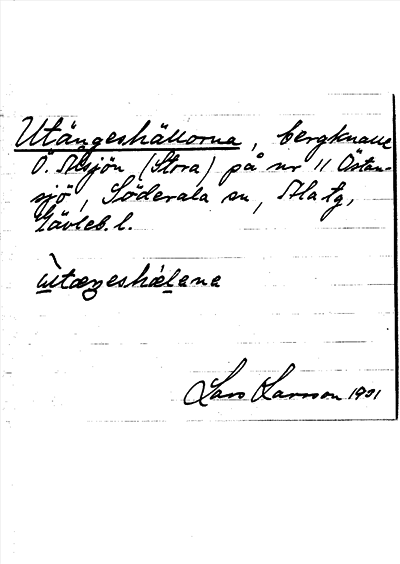 Utängeshällorna, bergknalle
Ö. Alsjön (Stora) på nr 11 Östan-
sjö, Söderala sn, Ala tg,
Gävleb. l.
Lars Larsson 1931